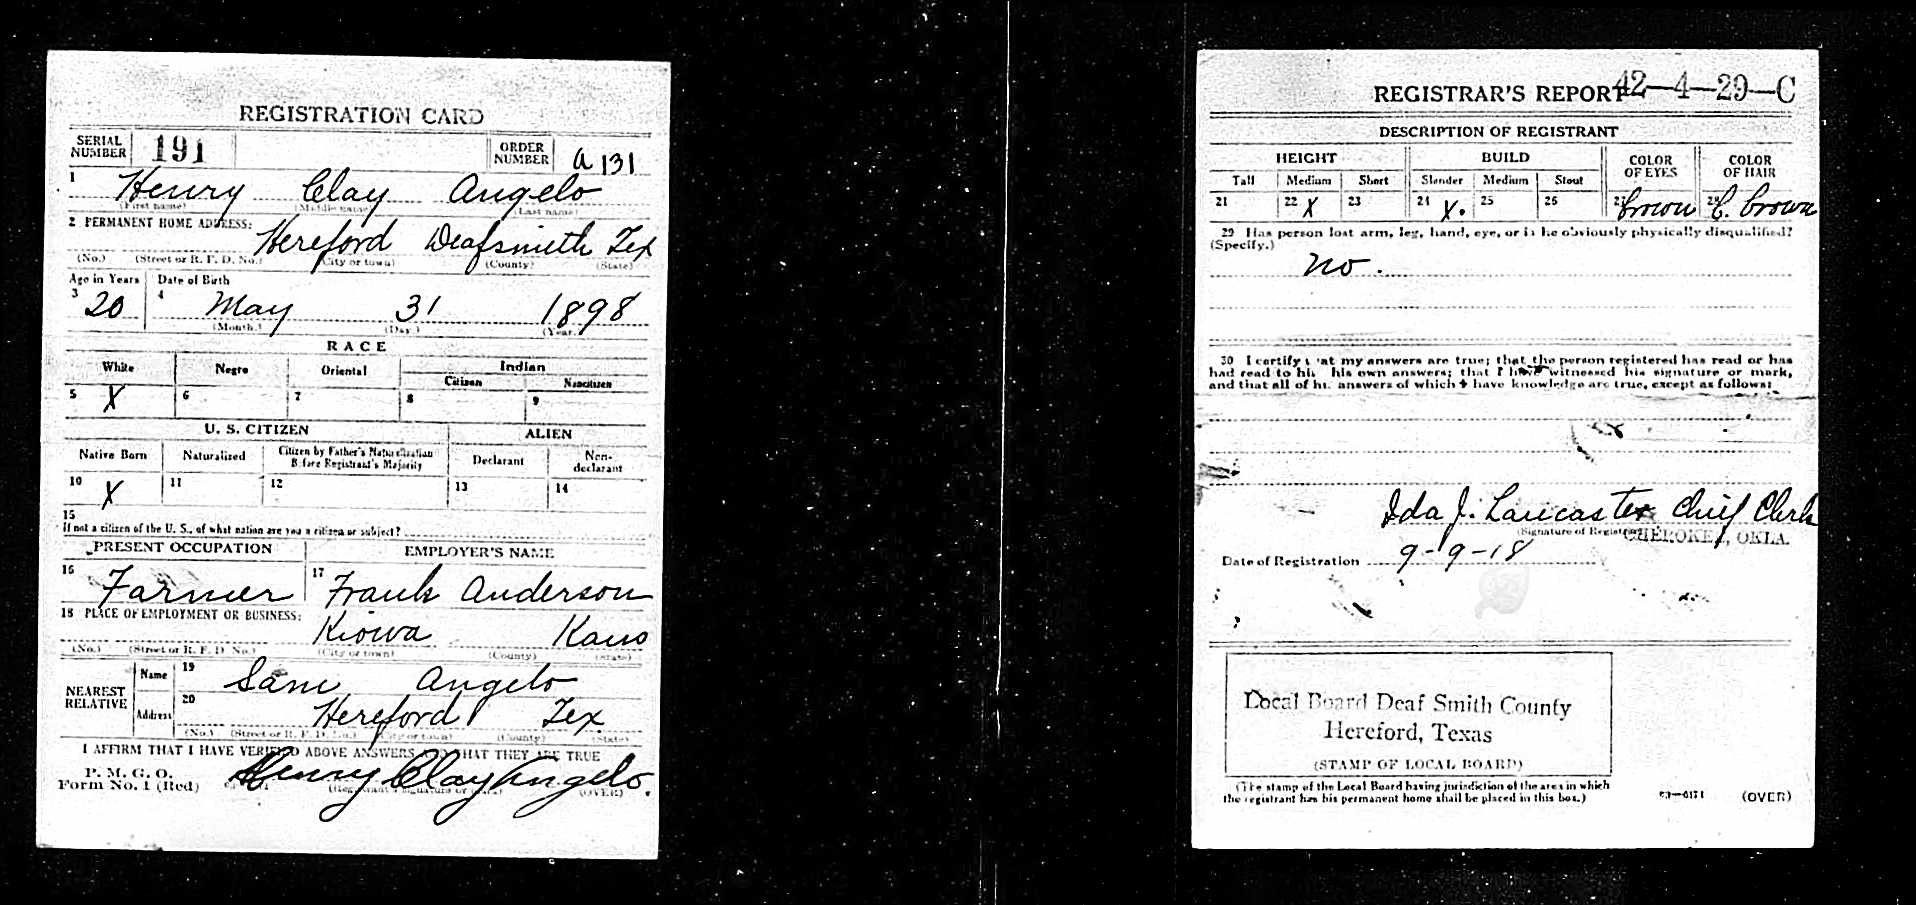 REGISTRATION CARD
SERIAL NUMBER 191 ORDER NUMBER a 131
1 Henry Clay Angelo
(First name) (Middle name) (Last name)
2 PERMANENT HOME ADDRESS:
Hereford Deafsmith Tex
(No.) (Street or R. F. D. No.) (City or town) (County) (State)
Age in Years Date of Birth
3 20 4 May 31 1898
(Month.) (Day.) (Year.)
RACE
White Negro Oriental Indian
Citizen Noncitizen
5 X 6 7 8 9
U. S. CITIZEN ALIEN
Native Born Naturalized Citizen by Father's Naturalization Before Registrant's Majority Declarant Non-declarant
10 X 11 12 13 14
15
If not a citizen of the U. S., of what nation are you a citizen or subject?
PRESENT OCCUPATION EMPLOYER'S NAME
16 Farmer 17 Frank Anderson
18 PLACE OF EMPLOYMENT OR BUSINESS:
Kiowa Kans
(No.) (Street or R. F. D. No.) (City or town) (County) (State)
NEAREST RELATIVE Name 19 Sam Angelo
Address 20 Hereford Tex
(No.) (Street or R. F. D. No.) (City or town) (County) (State)
I AFFIRM THAT I HAVE VERIFIED ABOVE ANSWERS AND THAT THEY ARE TRUE
P. M. G. O.
Form No. 1 (Red) Henry Clay Angelo.
(Registrant's signature or mark) (OVER)
REGISTRAR'S REPORT 42-4-29-C
DESCRIPTION OF REGISTRANT
HEIGHT BUILD COLOR OF EYES COLOR OF HAIR
Tall Medium Short Slender Medium Stout
21 22 X 23 24 X. 25 26 27 brown 28 C. brown
29 Has person lost arm, leg, hand, eye, or is he obviously physically disqualified?
(Specify.)
no.
30 I certify that my answers are true; that the person registered has read or has
had read to him his own answers; that I have witnessed his signature or mark,
and that all of his answers of which I have knowledge are true, except as follows:
Ida J. Lancaster Chief Clerk
(Signature of Registrar)
CHEROKEE, OKLA.
Date of Registration 9-9-18
Local Board Deaf Smith County
Hereford, Texas
(STAMP OF LOCAL BOARD)
(The stamp of the Local Board having jurisdiction of the area in which
the registrant has his permanent home shall be placed in this box.)
(OVER)